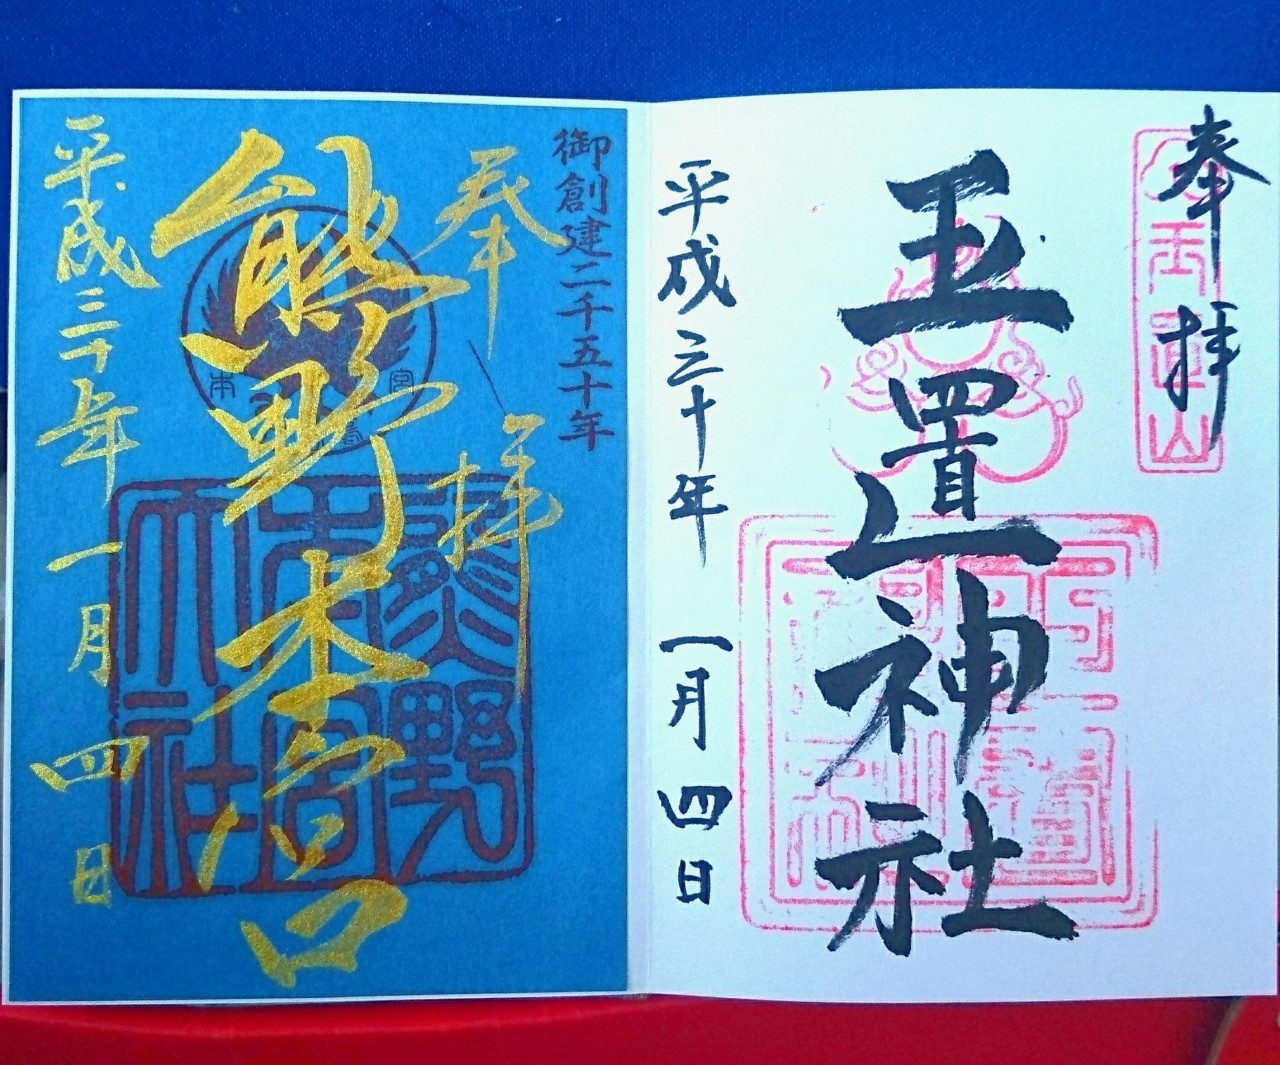 奉拝
玉置山
玉置神社
平成三十年 一月四日
御創建二千五十年
奉拝
熊野本宮
本宮
熊野本宮大社
平成三十年 一月四日